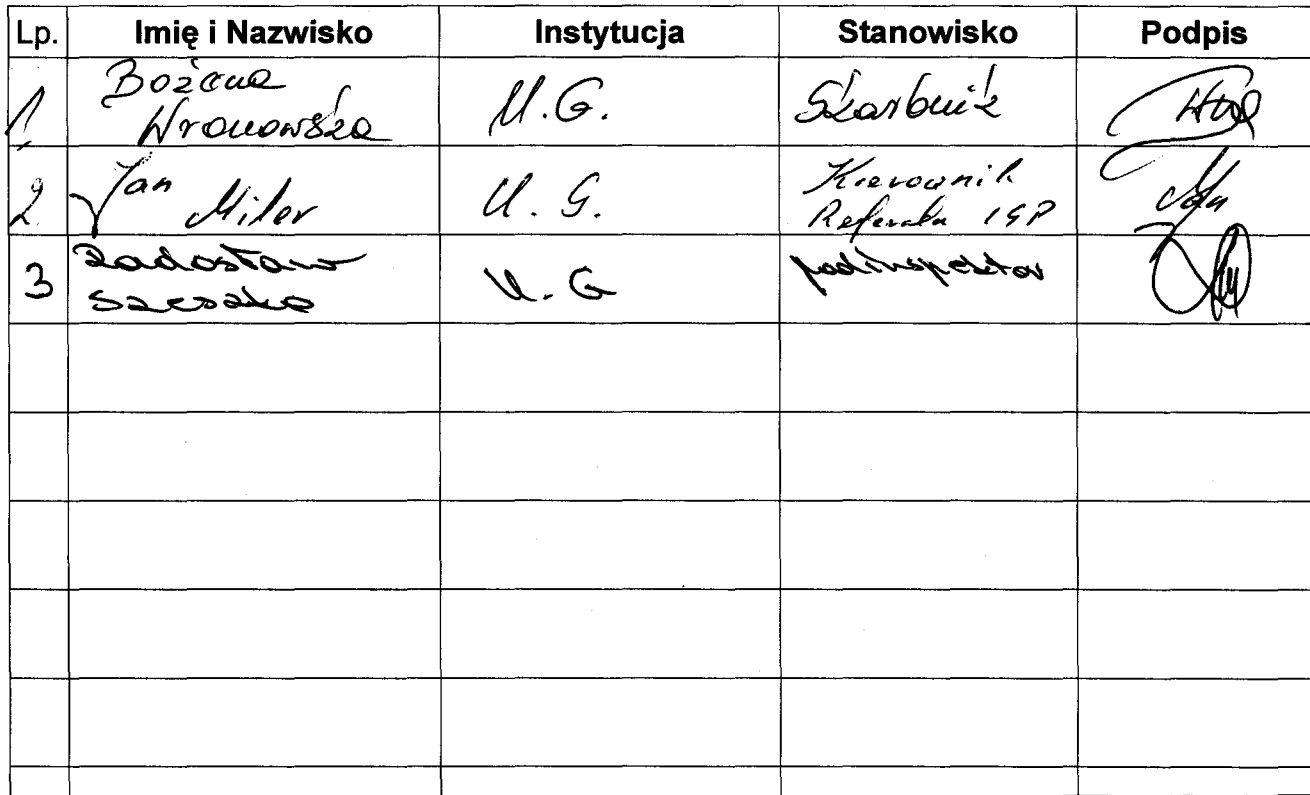 Lp. Imię i Nazwisko Instytucja Stanowisko Podpis
1. Bożena
Wronowska U.G. Skarbnik
2. Jan
Miler U. G. Kierownik
Referatu IGP
3 Radosław
Szeszko U. G podinspektor